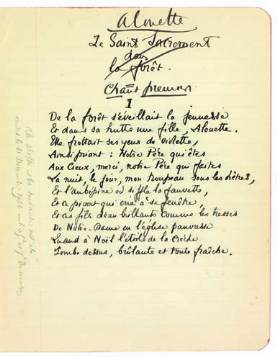 Alouette
Le Saint Sacrement
dans
la forêt.
Chant premier
I
De la forêt s'éveillait la jeunesse
Et dans sa hutte une fille, Alouette.
Elle frottait ses yeux de violette,
Ainsi priant : Notre Père qui êtes
Aux Cieux, merci, notre Père qui faites
La nuit, le jour, mon troupeau sous les hêtres,
Et l'aubépine où siffle la fauvette,
Et ce
De Notre-Dame en l'église pauvresse
Quand à Noël l'étoile de la Crèche
Tombe dessus, brûlante et toute fraîche.